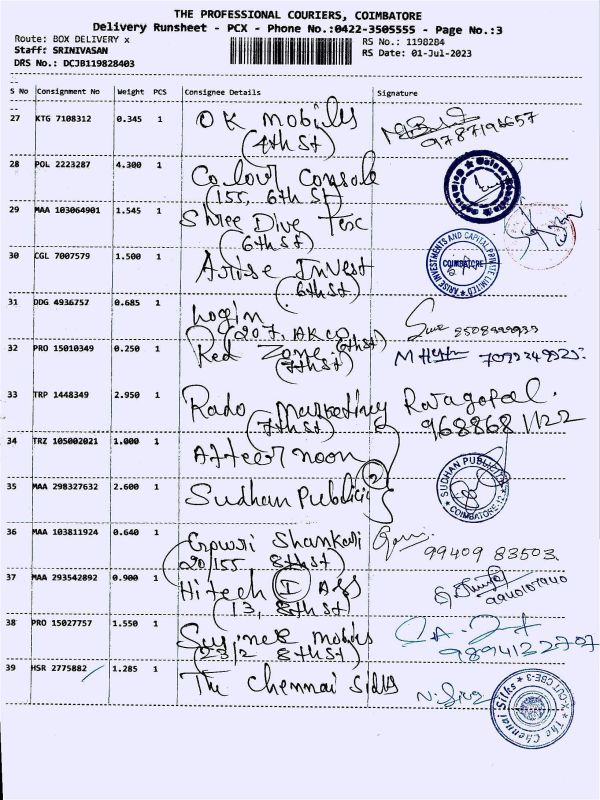 THE PROFESSIONAL COURIERS, COIMBATORE
Delivery Runsheet - PCX - Phone No.:0422-3505555 - Page No.:3
Route: BOX DELIVERY x
RS No.: 1198284
Staff: SRINIVASAN
RS Date: 01-Jul-2023
DRS No.: DCJB119828403
S No Consignment No Weight PCS Consignee Details Signature
27 KTG 7108312 0.345 1 OK Mobiles
(4th St)
28 POL 2223287 4.300 1 Colour Console
(155, 6th St)
29 MAA 103064901 1.545 1 Shree Dive Tesc
(6th St)
30 CGL 7007579 1.500 1 Arise Invest
(6th St)
ARISE INVESTMENTS AND CAPITAL PRIVATE LIMITED
COIMBATORE
31 DDG 4936757 0.685 1 Login
(207, AK CO 6th St)
32 PRO 15010349 0.250 1 Red Zone
(7th St)
33 TRP 1448349 2.950 1 Rado Marketing Rajagopal
(7th St) 968868 1122
34 TRZ 105002021 1.000 1 Afteer noon
2
35 MAA 298327632 2.600 1 Sudhan Publici
SUDHAN PUBLICITY
COIMBATORE-12
36 MAA 103811924 0.640 1 Gowri Shankari
(20/155 8th St) 99409 83503
37 MAA 293542892 0.900 1 Hitech I Ass
(13, 8th St)
38 PRO 15027757 1.550 1 mobiles
(23/2 8th St)
39 HSR 2775882 1.285 1 The Chennai Silks N. Siva
The Chennai Silks * X-CUT CBE-3